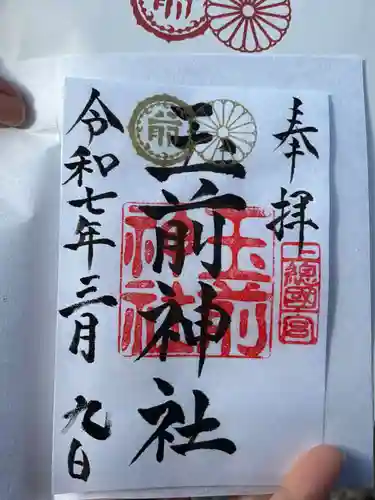 奉拝
上総國一宮
玉前神社
玉前神社
令和七年三月九日
前
前